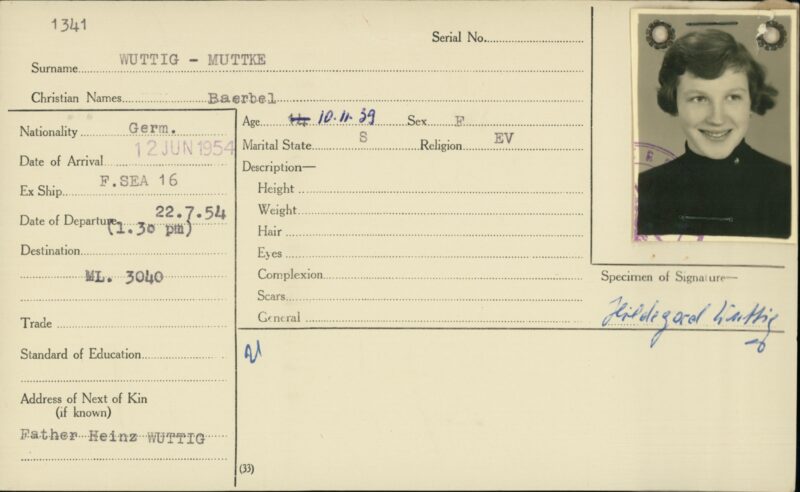 1341
Serial No.
Surname WUTTIG - MUTTKE
Christian Names Baerbel
Nationality Germ.
Date of Arrival 12 JUN 1954
Ex Ship F.SEA 16
Date of Departure 22.7.54
(1.30 pm)
Destination
ML. 3040
Trade
Standard of Education
Address of Next of Kin
(if known)
Father Heinz WUTTIG
Age 14 10.11.39 Sex F
Marital State S Religion EV
Description—
Height
Weight
Hair
Eyes
Complexion
Scars
General
(33)
Specimen of Signature—
Hildegard Wuttig